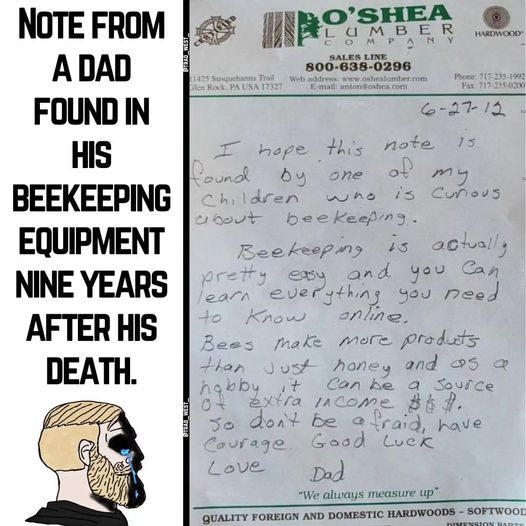 NOTE FROM
A DAD
FOUND IN
HIS
BEEKEEPING
EQUIPMENT
NINE YEARS
AFTER HIS
DEATH.
@FRAD_WEST_
@FRAD_WEST_
O'SHEA
LUMBER
COMPANY
HARDWOOD
SALES LINE
800-638-0296
11425 Susquehanna Trail
Glen Rock, PA USA 17327
Web address: www.oshealumber.com
E-mail: anton@oshea.com
Phone: 717-235-1992
Fax: 717-235-0200
6-27-12
I hope this note is
found by one of my
children who is curious
about beekeeping.
Beekeeping is actually
pretty easy and you can
learn everything you need
to know online.
Bees make more products
than just honey and as a
hobby it can be a source
of extra income $$$.
So don't be afraid, have
courage. Good Luck
Love Dad
"We always measure up"
QUALITY FOREIGN AND DOMESTIC HARDWOODS – SOFTWOOD